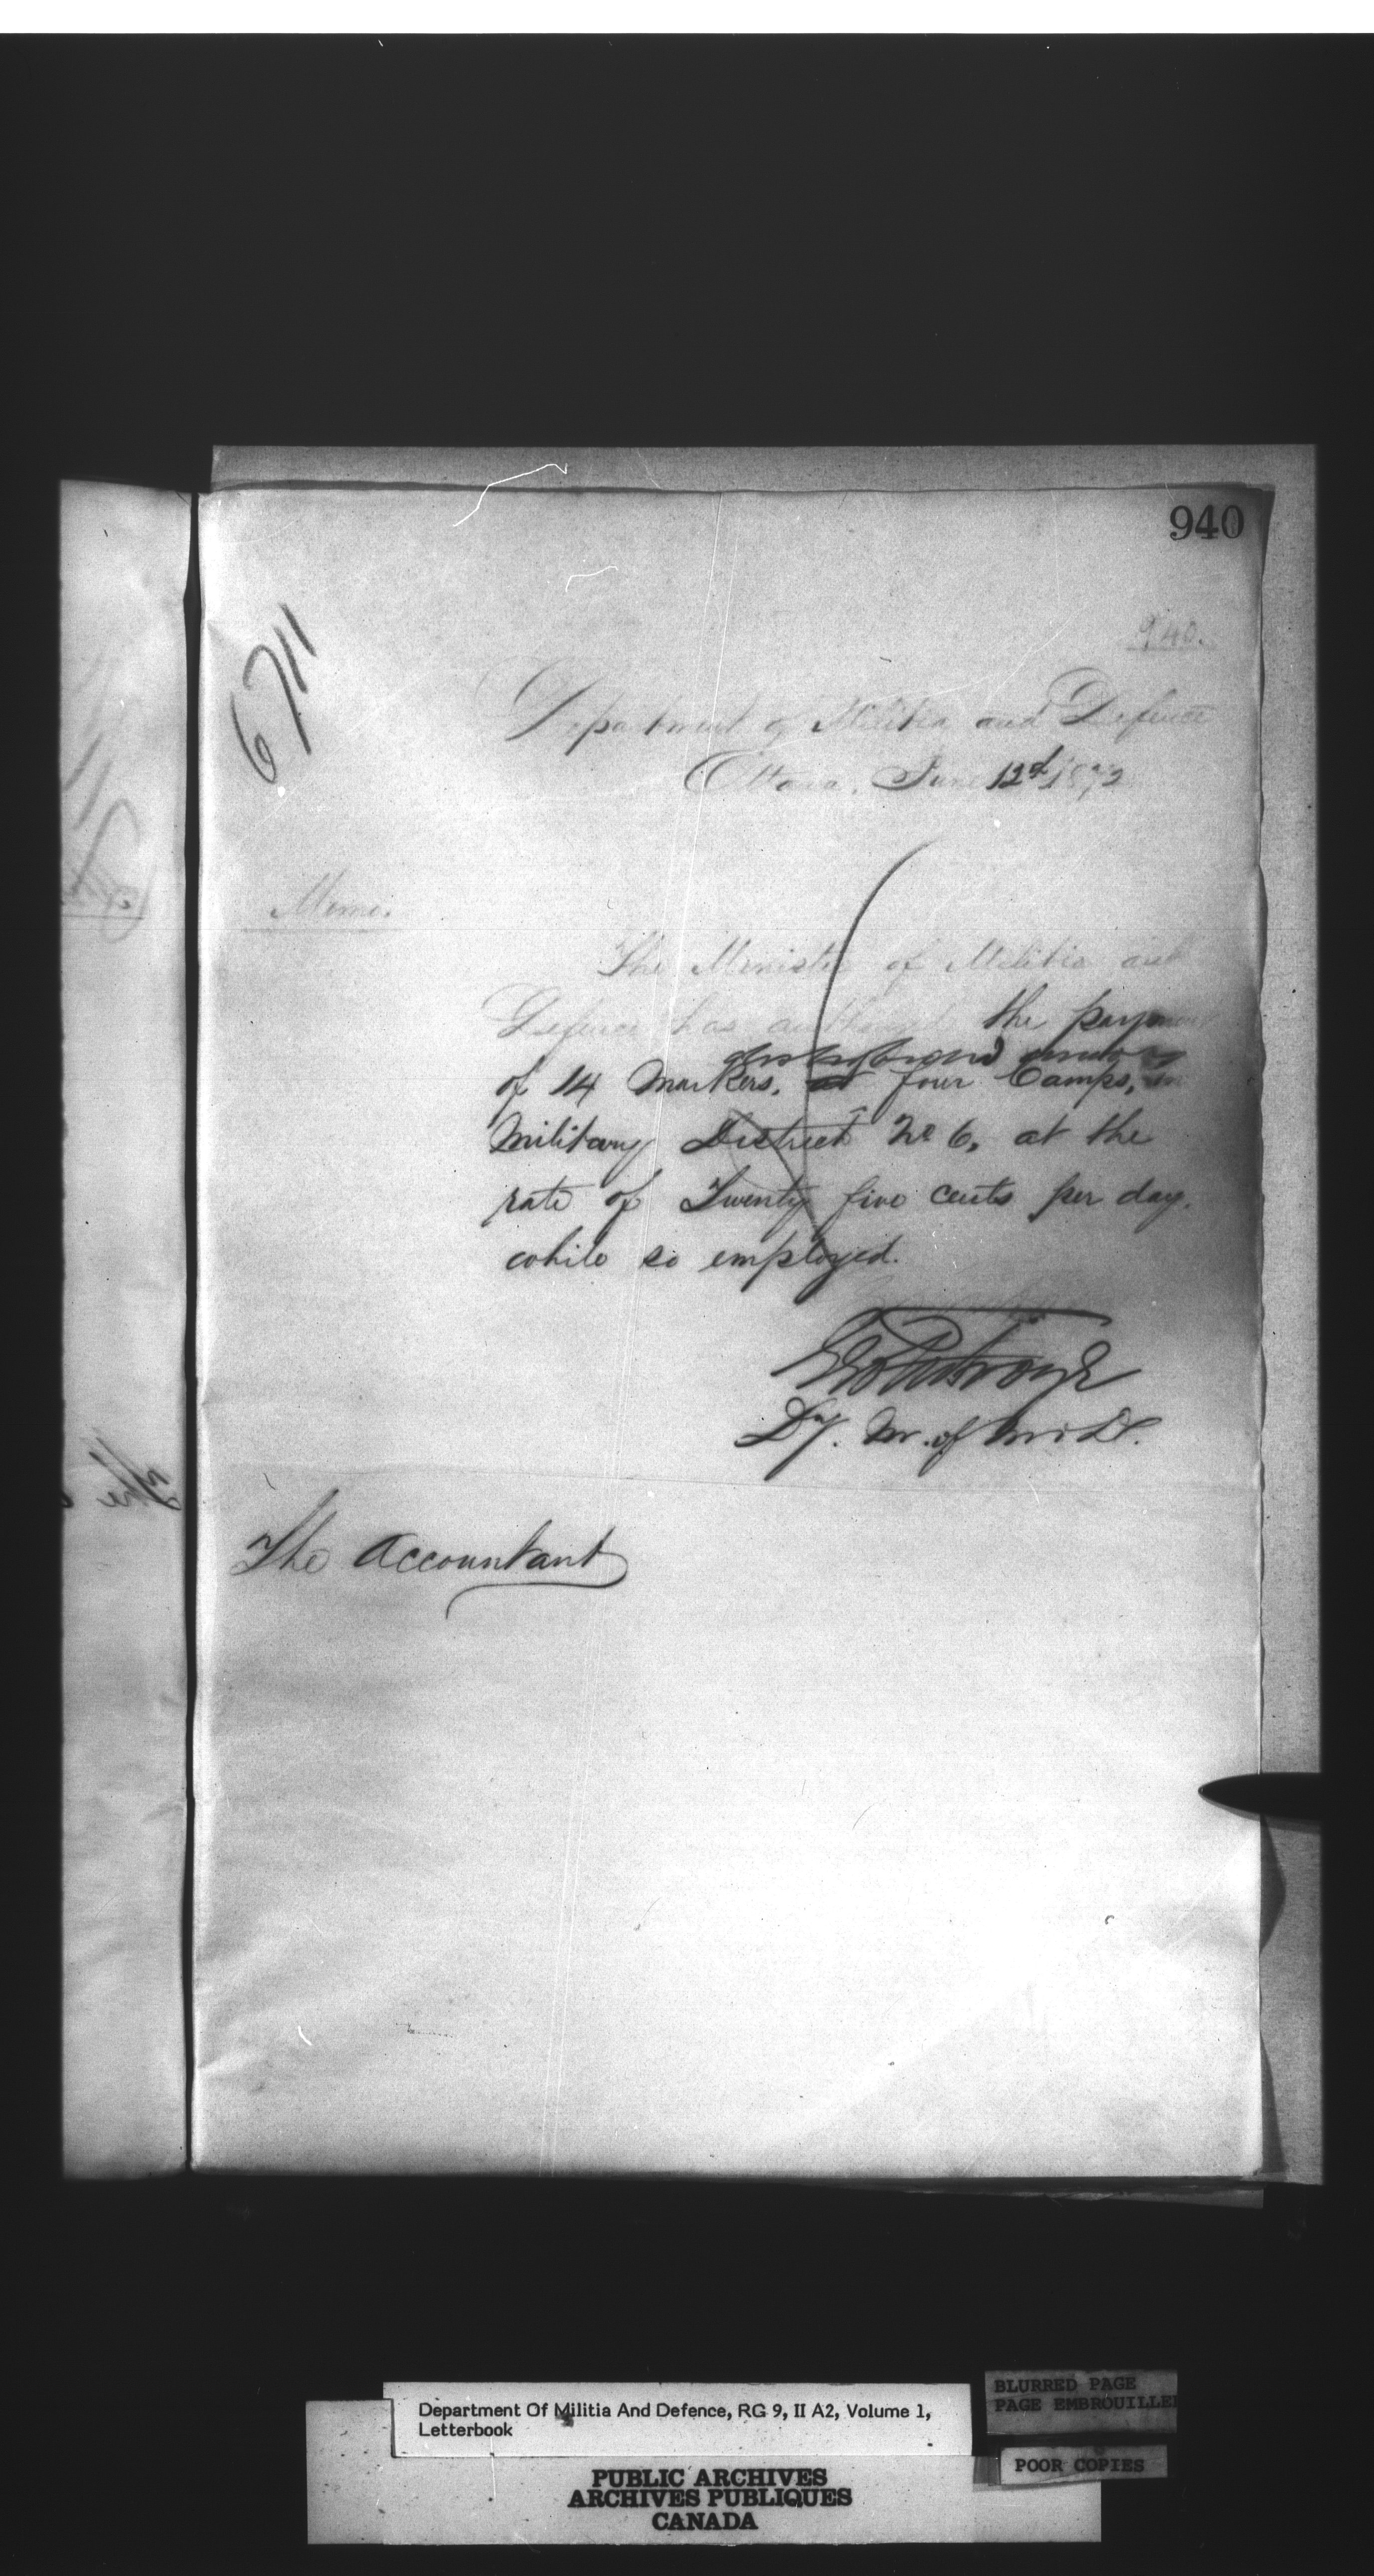 940
6711
940.
Department of Militia and Defence
Ottawa. June 12th 1872
Memo.
The Minister of Militia and
Defence has authorized the payment
of 14 Markers, at four Camps, in
Military District No 6, at the
rate of Twenty five cents per day,
while so employed.
Dy. M. of M & D.
The Accountant
Department Of Militia And Defence, RG 9, II A2, Volume 1,
Letterbook
BLURRED PAGE
PAGE EMBROUILLEE
POOR COPIES
PUBLIC ARCHIVES
ARCHIVES PUBLIQUES
CANADA